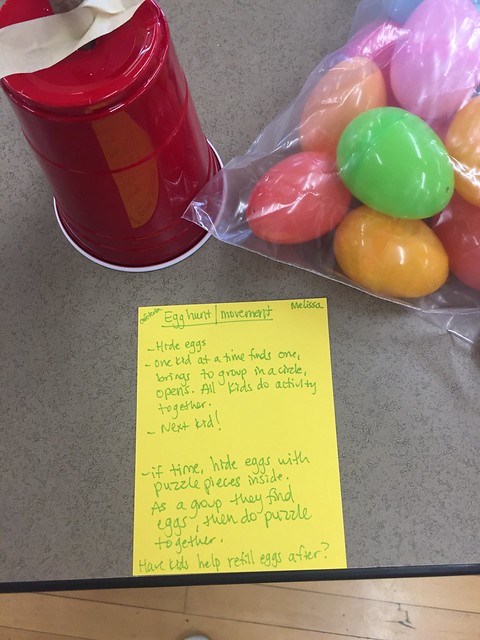 Egg hunt | movement
Melissa
- Hide eggs
- One kid at a time finds one,
brings to group in a circle,
opens. All kids do activity
together.
- Next kid!
- if time, hide eggs with
puzzle pieces inside.
As a group they find
eggs, then do puzzle
together.
Have kids help refill eggs after?